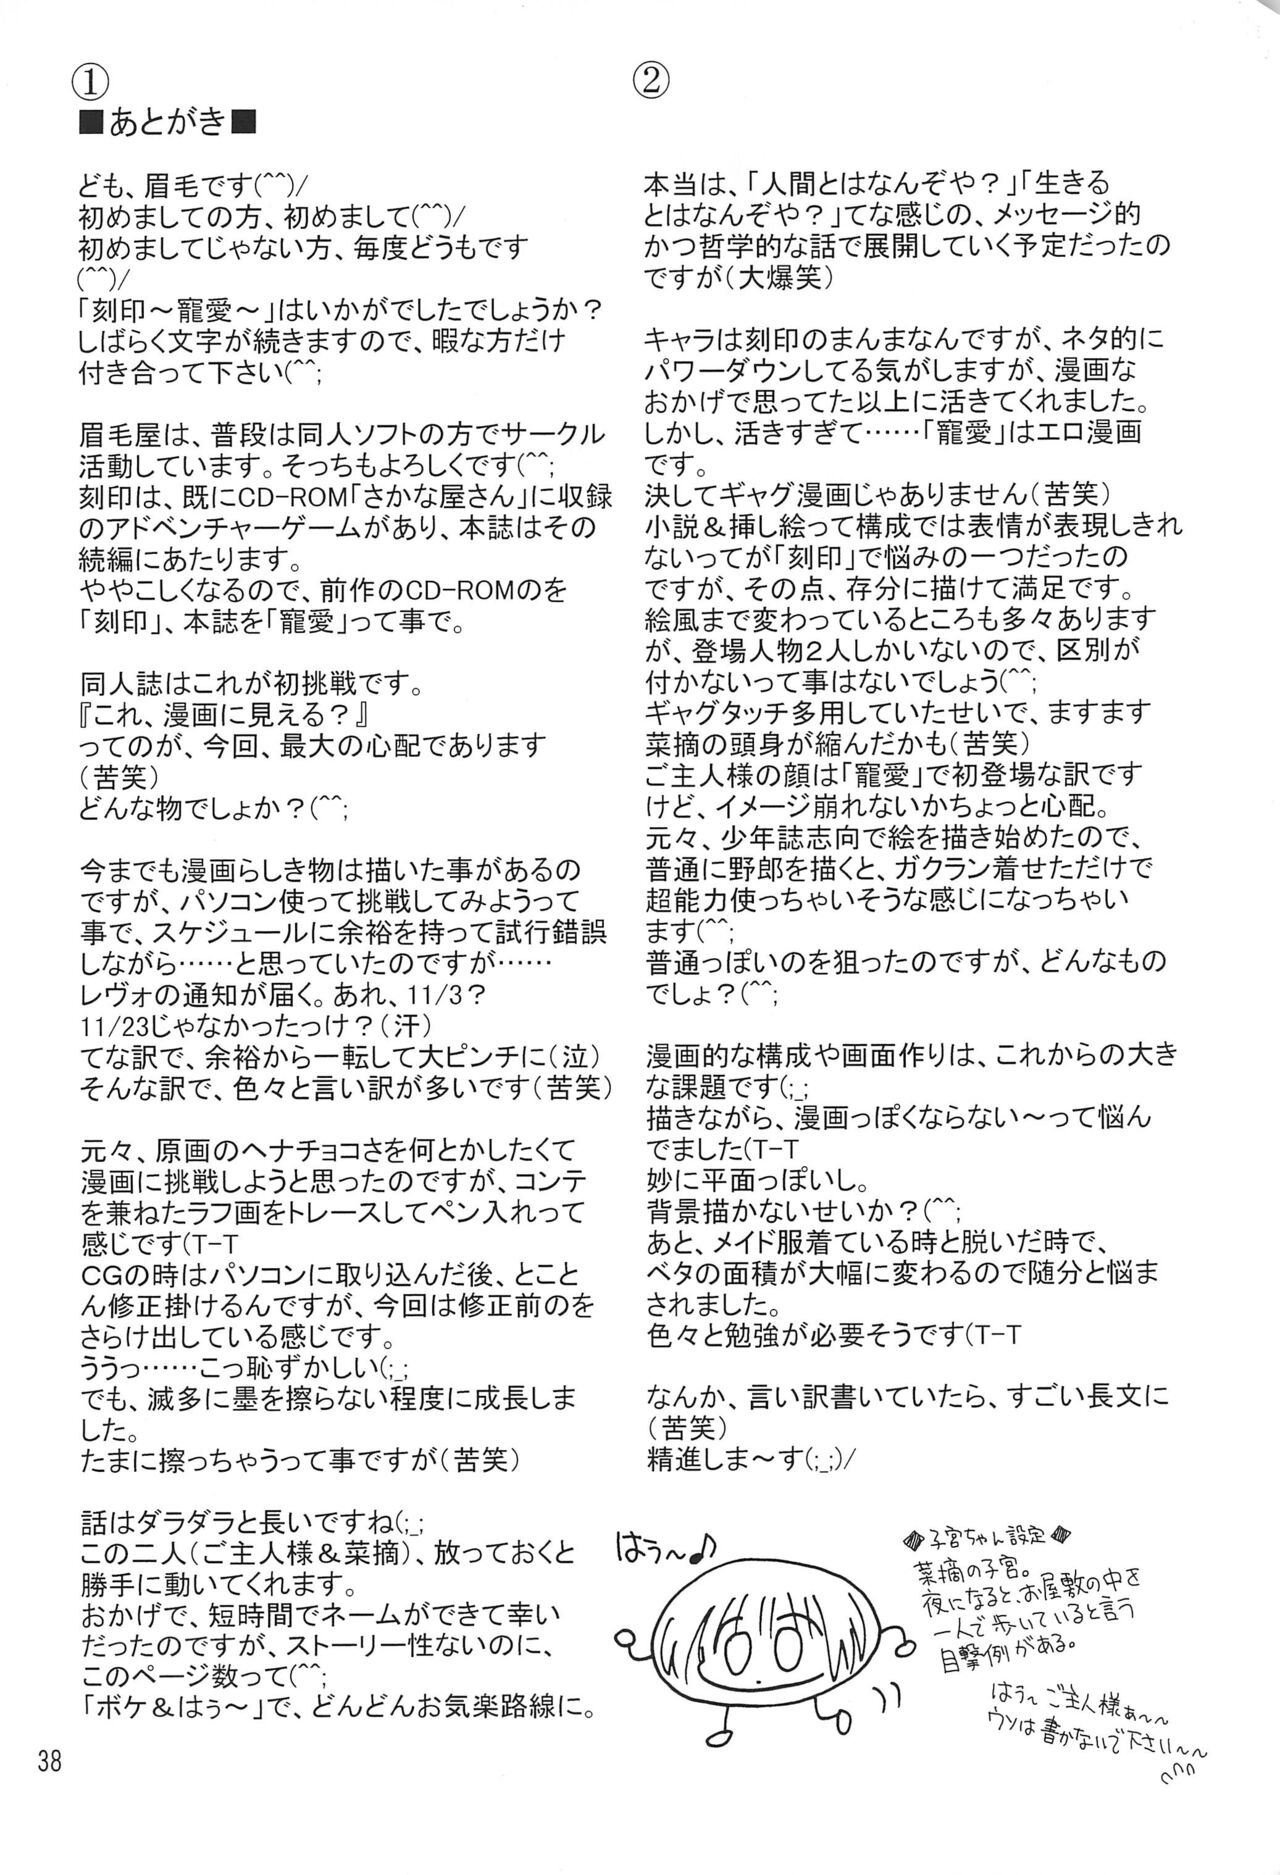 ①
■あとがき■
ども、眉毛です(^^)/
初めましての方、初めまして(^^)/
初めましてじゃない方、毎度どうもです
(^^)/
「刻印～寵愛～」はいかがでしたでしょうか？
しばらく文字が続きますので、暇な方だけ
付き合って下さい(^^;
眉毛屋は、普段は同人ソフトの方でサークル
活動しています。そっちもよろしくです(^^;
刻印は、既にCD-ROM「さかな屋さん」に収録
のアドベンチャーゲームがあり、本誌はその
続編にあたります。
ややこしくなるので、前作のCD-ROMのを
「刻印」、本誌を「寵愛」って事で。
同人誌はこれが初挑戦です。
『これ、漫画に見える？』
ってのが、今回、最大の心配であります
(苦笑)
どんな物でしょか？(^^;
今までも漫画らしき物は描いた事があるの
ですが、パソコン使って挑戦してみようって
事で、スケジュールに余裕を持って試行錯誤
しながら……と思っていたのですが……
レヴォの通知が届く。あれ、11/3？
11/23じゃなかったっけ？(汗)
てな訳で、余裕から一転して大ピンチに(泣)
そんな訳で、色々と言い訳が多いです(苦笑)
元々、原画のヘナチョコさを何とかしたくて
漫画に挑戦しようと思ったのですが、コンテ
を兼ねたラフ画をトレースしてペン入れって
感じです(T-T
ＣＧの時はパソコンに取り込んだ後、とこと
ん修正掛けるんですが、今回は修正前のを
さらけ出している感じです。
ううっ……こっ恥ずかしい(;_;
でも、滅多に墨を擦らない程度に成長しま
した。
たまに擦っちゃうって事ですが(苦笑)
話はダラダラと長いですね(;_;
この二人(ご主人様＆菜摘)、放っておくと
勝手に動いてくれます。
おかげで、短時間でネームができて幸い
だったのですが、ストーリー性ないのに、
このページ数って(^^;
「ボケ＆はぅ～」で、どんどんお気楽路線に。
②
本当は、「人間とはなんぞや？」「生きる
とはなんぞや？」てな感じの、メッセージ的
かつ哲学的な話で展開していく予定だったの
ですが(大爆笑)
キャラは刻印のまんまなんですが、ネタ的に
パワーダウンしてる気がしますが、漫画な
おかげで思ってた以上に活きてくれました。
しかし、活きすぎて……「寵愛」はエロ漫画
です。
決してギャグ漫画じゃありません(苦笑)
小説＆挿し絵って構成では表情が表現しきれ
ないってが「刻印」で悩みの一つだったの
ですが、その点、存分に描けて満足です。
絵風まで変わっているところも多々あります
が、登場人物２人しかいないので、区別が
付かないって事はないでしょう(^^;
ギャグタッチ多用していたせいで、ますます
菜摘の頭身が縮んだかも(苦笑)
ご主人様の顔は「寵愛」で初登場な訳です
けど、イメージ崩れないかちょっと心配。
元々、少年誌志向で絵を描き始めたので、
普通に野郎を描くと、ガクラン着せただけで
超能力使っちゃいそうな感じになっちゃい
ます(^^;
普通っぽいのを狙ったのですが、どんなもの
でしょ？(^^;
漫画的な構成や画面作りは、これからの大き
な課題です(;_;
描きながら、漫画っぽくならない～って悩ん
でました(T-T
妙に平面っぽいし。
背景描かないせいか？(^^;
あと、メイド服着ている時と脱いだ時で、
ベタの面積が大幅に変わるので随分と悩ま
されました。
色々と勉強が必要そうです(T-T
なんか、言い訳書いていたら、すごい長文に
(苦笑)
精進しま～す(;_;)/
はぅ～♪
◆子宮ちゃん設定◆
菜摘の子宮。
夜になると、お屋敷の中を
一人で歩いていると言う
目撃例がある。
はぅ～ ご主人様ぁ～～
ウソは書かないで下さい～～
38